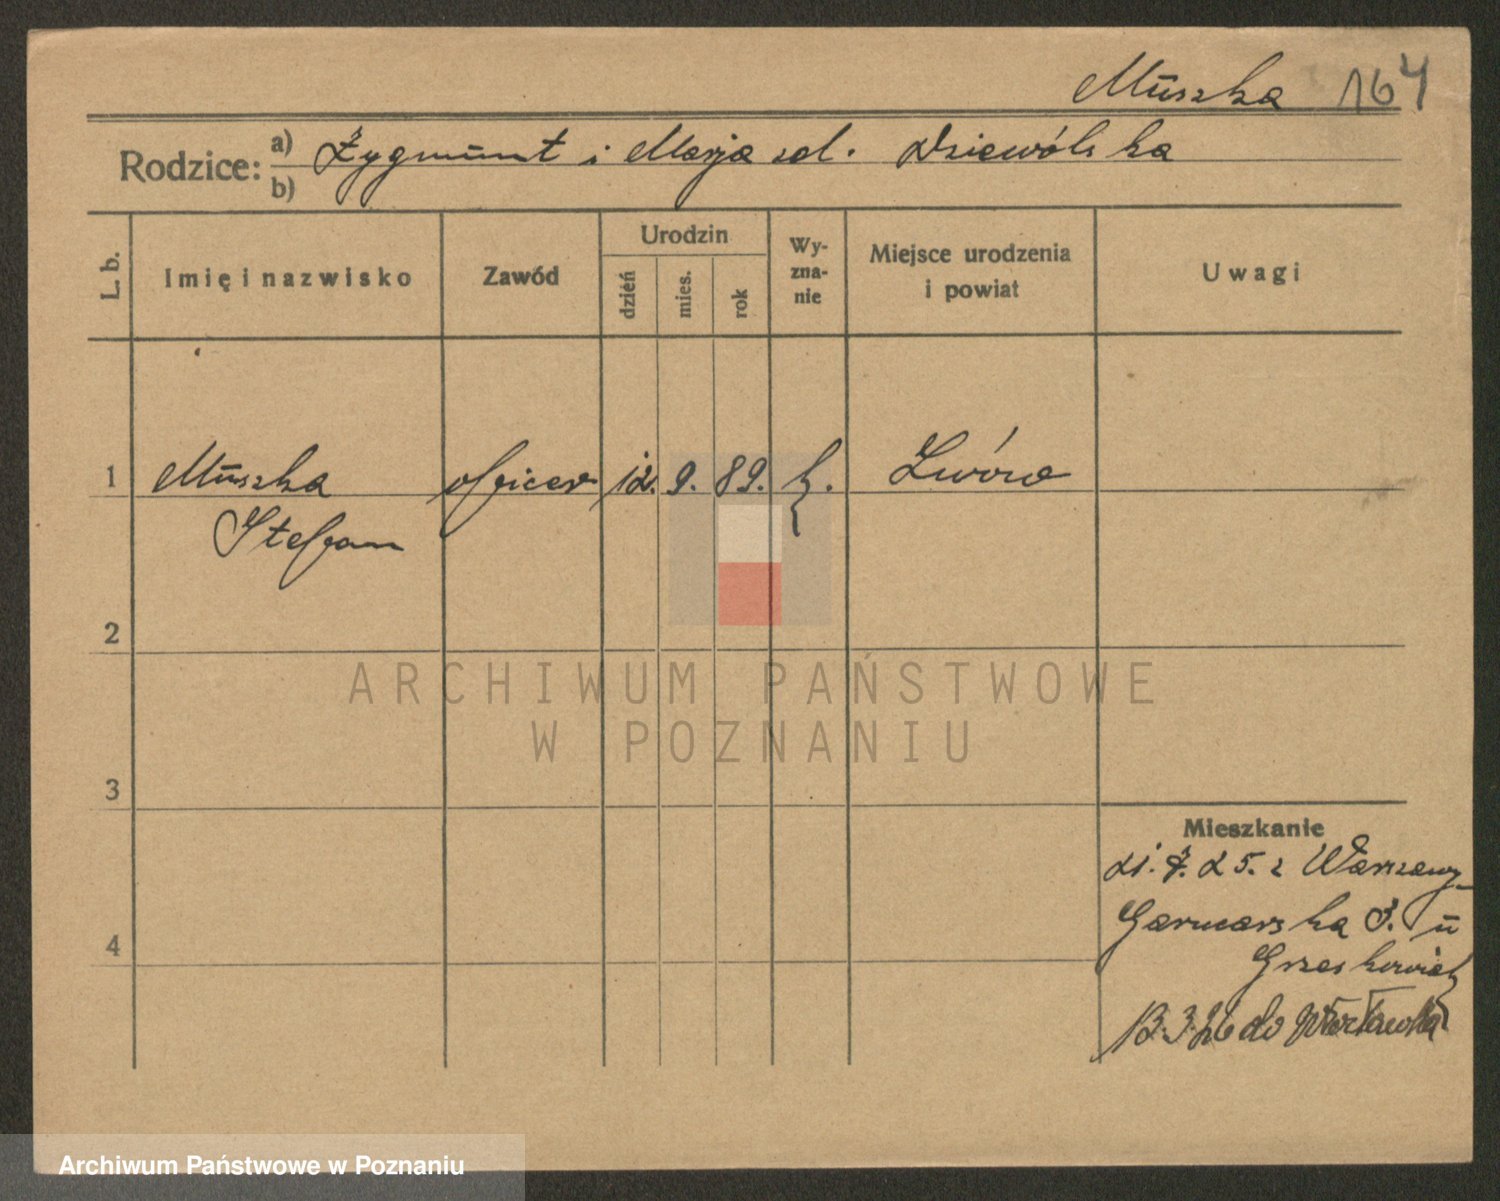 Muszka 164
Rodzice: a) Zygmunt i Marja zd. Dziewólska
b)
L. b. Imię i nazwisko Zawód Urodzin dzień mies. rok Wyznanie Miejsce urodzenia i powiat Uwagi
1 Muszka oficer 12. 9. 89. k. Lwów
Stefan
ARCHIWUM PAŃSTWOWE
W POZNANIU
2
3
Mieszkanie
21. 7. 25. z Warszawy
Garncarska 3. u
4
Grześkowiak
13.3.26 do Włocławka
Archiwum Państwowe w Poznaniu